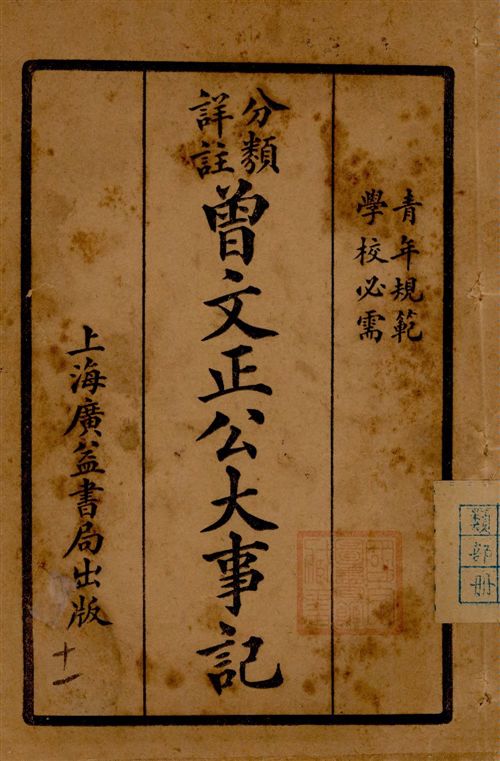 青年規範
學校必需
分類
詳註
曾文正公大事記
上海廣益書局出版
十一
類
部
册